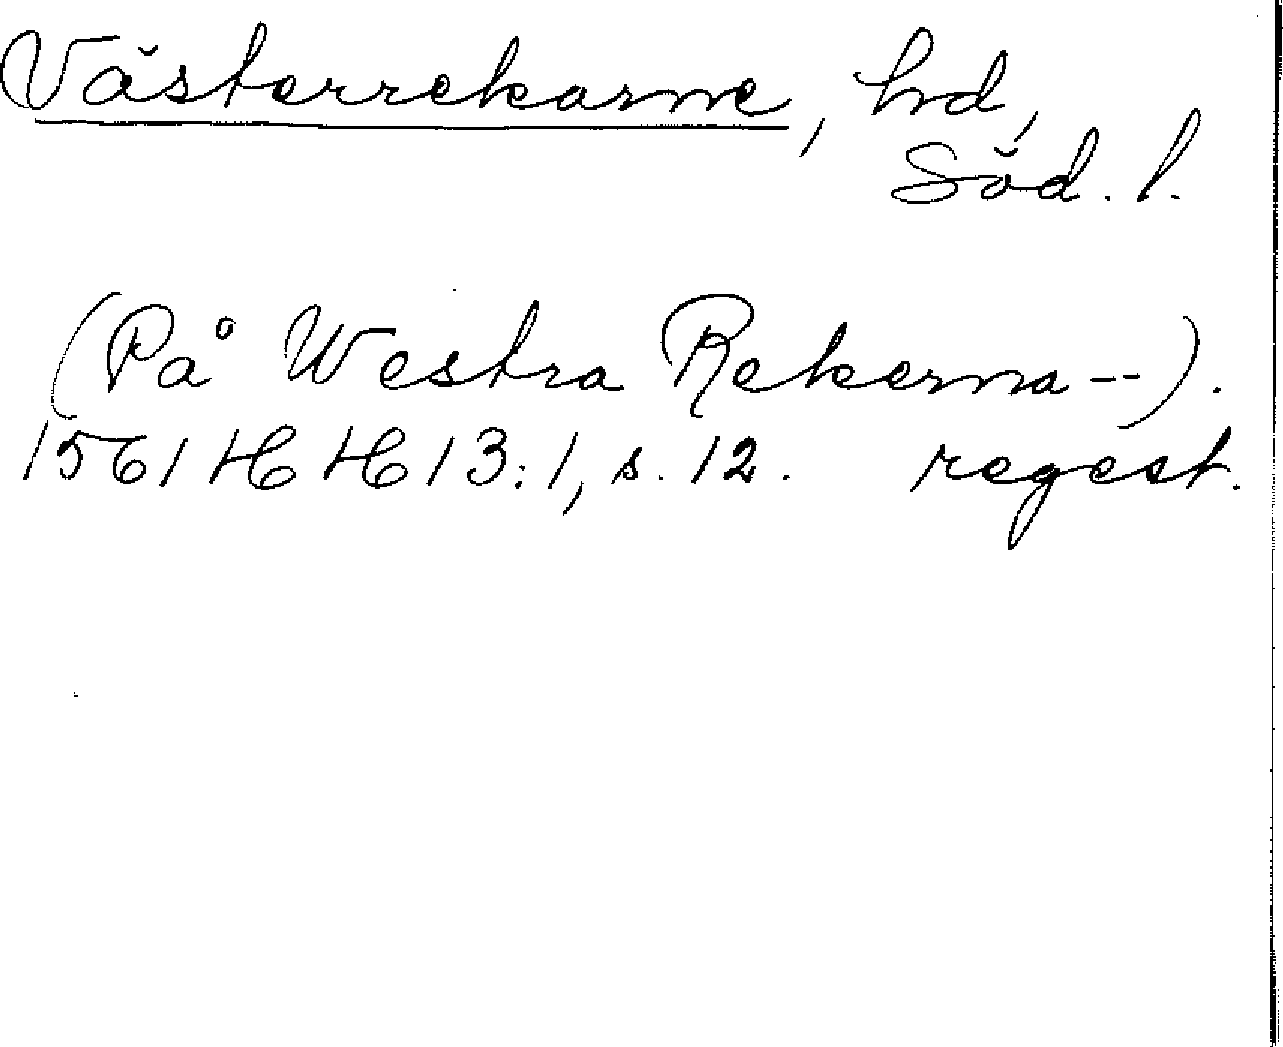 Västerrekarne, hd,
Söd. l.
(På Westra Rekerna --).
1561 HH 13:1, s. 12. regest.